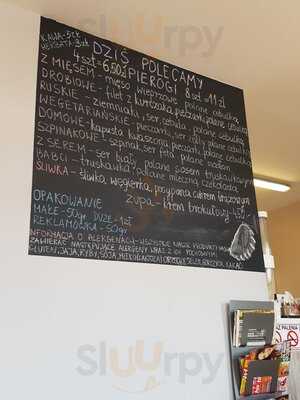 KAWA-5zł
HERBATA-3zł
DZIŚ POLECAMY
4 szt=6,50zł PIEROGI 8szt=11zł
Z MIĘSEM - mięso wieprzowe polane cebulką
DROBIOWE - filet z kurczaka, pieczarki, polane cebulką
RUSKIE - ziemniaki, ser, cebula, polane cebulką
WEGETARIAŃSKIE - pieczarki, ser żółty, polane cebulką
DOMOWE - kapusta kwaszona, pieczarki, polane cebulką
SZPINAKOWE - szpinak, ser feta, polane masłem
Z SEREM - ser biały, polane sosem truskawkowym
BABCI - truskawka, polane mleczną czekoladą
ŚLIWKA - śliwka węgierka, przyprawa cukrem brązowym
zupa - krem brokułowy
OPAKOWANIE
MAŁE - 50gr DUŻE - 1zł
REKLAMÓWKA - 50gr
INFORMACJA O ALERGENACH - WSZYSTKIE NASZE PRODUKTY MOGĄ
ZAWIERAĆ NASTĘPUJĄCE ALERGENY WRAZ Z ICH POCHODNYMI:
GLUTEN, JAJA, RYBY, SOJA, MLEKO, ORZECHY, SELER, GORCZYCA, KAKAO
sluurpy
sluurpy